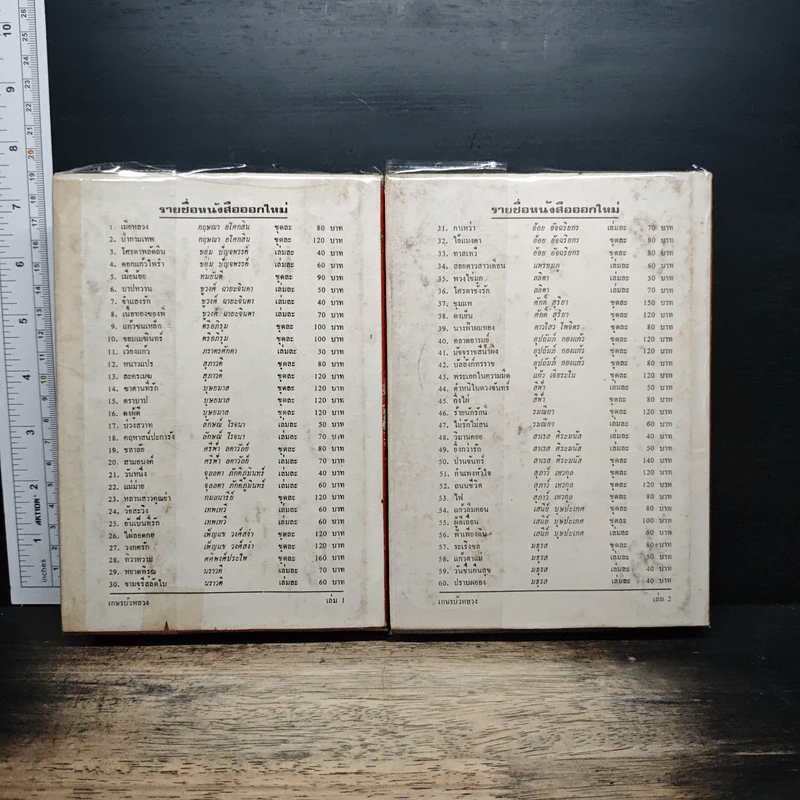 รายชื่อหนังสือออกใหม่
1. เมียหลวง กฤษณา อโศกสิน ชุดละ 80 บาท
2. ป่ากามเทพ กฤษณา อโศกสิน ชุดละ 120 บาท
3. ไฟรัก เล่มละ 40 บาท
4. ดอกแก้ว เล่มละ 60 บาท
5. เมียน้อย ทมยันตี ชุดละ 90 บาท
6. บาปหวาน ชูวงศ์ ฉายะจินดา เล่มละ 50 บาท
7. จำเลยรัก ชูวงศ์ ฉายะจินดา เล่มละ 40 บาท
8. ชูวงศ์ ฉายะจินดา เล่มละ 70 บาท
9. แก้วขนเหล็ก ตรีอภิรุม ชุดละ 100 บาท
10. จอมเมฆินทร์ ตรีอภิรุม ชุดละ 100 บาท
11. เวียงแก้ว เล่มละ 30 บาท
12. สุภาวดี ชุดละ 80 บาท
13. ละครเมฆ สุภาวดี ชุดละ 120 บาท
14. ซาตานที่รัก บุษยมาส ชุดละ 120 บาท
15. ตราบาป บุษยมาส ชุดละ 120 บาท
16. บุษยมาส ชุดละ 120 บาท
17. บ่วงสวาท ลักษณ์ โรจนา เล่มละ 50 บาท
18. ลักษณ์ โรจนา เล่มละ 70 บาท
19. ชลาลัย ศรีฟ้า ลดาวัลย์ ชุดละ 80 บาท
20. สามอนงค์ ศรีฟ้า ลดาวัลย์ เล่มละ 70 บาท
21. วันหนึ่ง จุลลดา ภักดีภูมินทร์ เล่มละ 40 บาท
22. แม่ม่าย จุลลดา ภักดีภูมินทร์ เล่มละ 60 บาท
23. หลานสาวคุณย่า กมลนารีย์ ชุดละ 120 บาท
24. เทพเทวี เล่มละ 60 บาท
25. อันเป็นที่รัก เทพเทวี เล่มละ 60 บาท
26. เพ็ญแข วงศ์สง่า ชุดละ 120 บาท
27. วงกตรัก เพ็ญแข วงศ์สง่า ชุดละ 120 บาท
28. ทิวาหวาม ชุดละ 160 บาท
29. นราวดี เล่มละ 70 บาท
30. นราวดี เล่มละ 60 บาท
เกษรบัวหลวง เล่ม 1
รายชื่อหนังสือออกใหม่
31. กาเหว่า อ้อย อัจฉริยกร เล่มละ 70 บาท
32. ไอ้แมงดา อ้อย อัจฉริยกร ชุดละ 80 บาท
33. ทาสเทวี อ้อย อัจฉริยกร ชุดละ 80 บาท
34. สอยดาวสาวเดือน เล่มละ 60 บาท
35. พวงไข่มุก ลลิตา เล่มละ 50 บาท
36. ลลิตา เล่มละ 70 บาท
37. ขุมแพ ศักดิ์ สุริยา ชุดละ 150 บาท
38. ดงเย็น ศักดิ์ สุริยา ชุดละ 80 บาท
39. นางฟ้าผมทอง ดาวไสว ไพจิตร ชุดละ 80 บาท
40. ตลาดอารมณ์ อุปถัมภ์ กองแก้ว ชุดละ 120 บาท
41. อุปถัมภ์ กองแก้ว ชุดละ 120 บาท
42. บัลลังก์ทรราช อุปถัมภ์ กองแก้ว ชุดละ 80 บาท
43. พระเอกในความมืด แก้ว เจียระไน ชุดละ 120 บาท
44. ตำหนิในดวงจันทร์ สีฟ้า เล่มละ 50 บาท
45. กิ่งไผ่ สีฟ้า ชุดละ 80 บาท
46. ร่ายนักรักนี่ รมณียา ชุดละ 120 บาท
47. ไม่รักไม่สน รมณียา เล่มละ 60 บาท
48. วิมานคอย สาเรส ศิระมนัส เล่มละ 40 บาท
49. ยิ่งกว่ารัก สาเรส ศิระมนัส เล่มละ 50 บาท
50. ม่านจันทร์ สาเรส ศิระมนัส ชุดละ 140 บาท
51. กำแพงหัวใจ สุภาว์ เทวกุล ชุดละ 120 บาท
52. ถนนชีวิต สุภาว์ เทวกุล ชุดละ 120 บาท
53. ไฟ สุภาว์ เทวกุล ชุดละ 80 บาท
54. แก้วลืมคอน เสนีย์ บุษปะเกศ ชุดละ 80 บาท
55. ผีดีเถื่อน เสนีย์ บุษปะเกศ ชุดละ 100 บาท
56. ฟ้าเพียงดิน เสนีย์ บุษปะเกศ เล่มละ 60 บาท
57. ระเริงชล มธุรส ชุดละ 80 บาท
58. แก้วตาแม่ มธุรส เล่มละ 50 บาท
59. วันชื่นคืนสุข มธุรส เล่มละ 40 บาท
60. ปราบผยอง มธุรส เล่มละ 40 บาท
เกษรบัวหลวง เล่ม 2
AKTION
inches